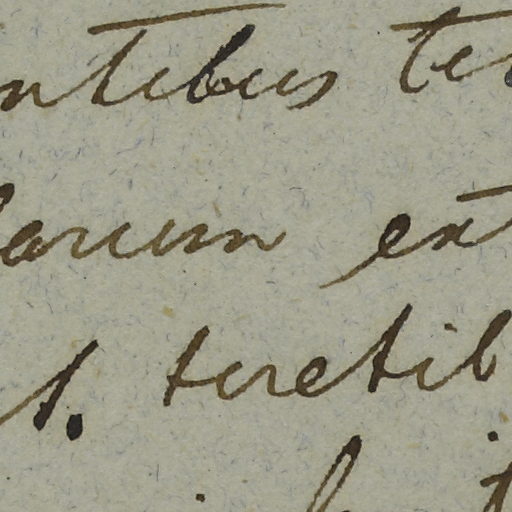 ntibus te
larum ex
s. teretib